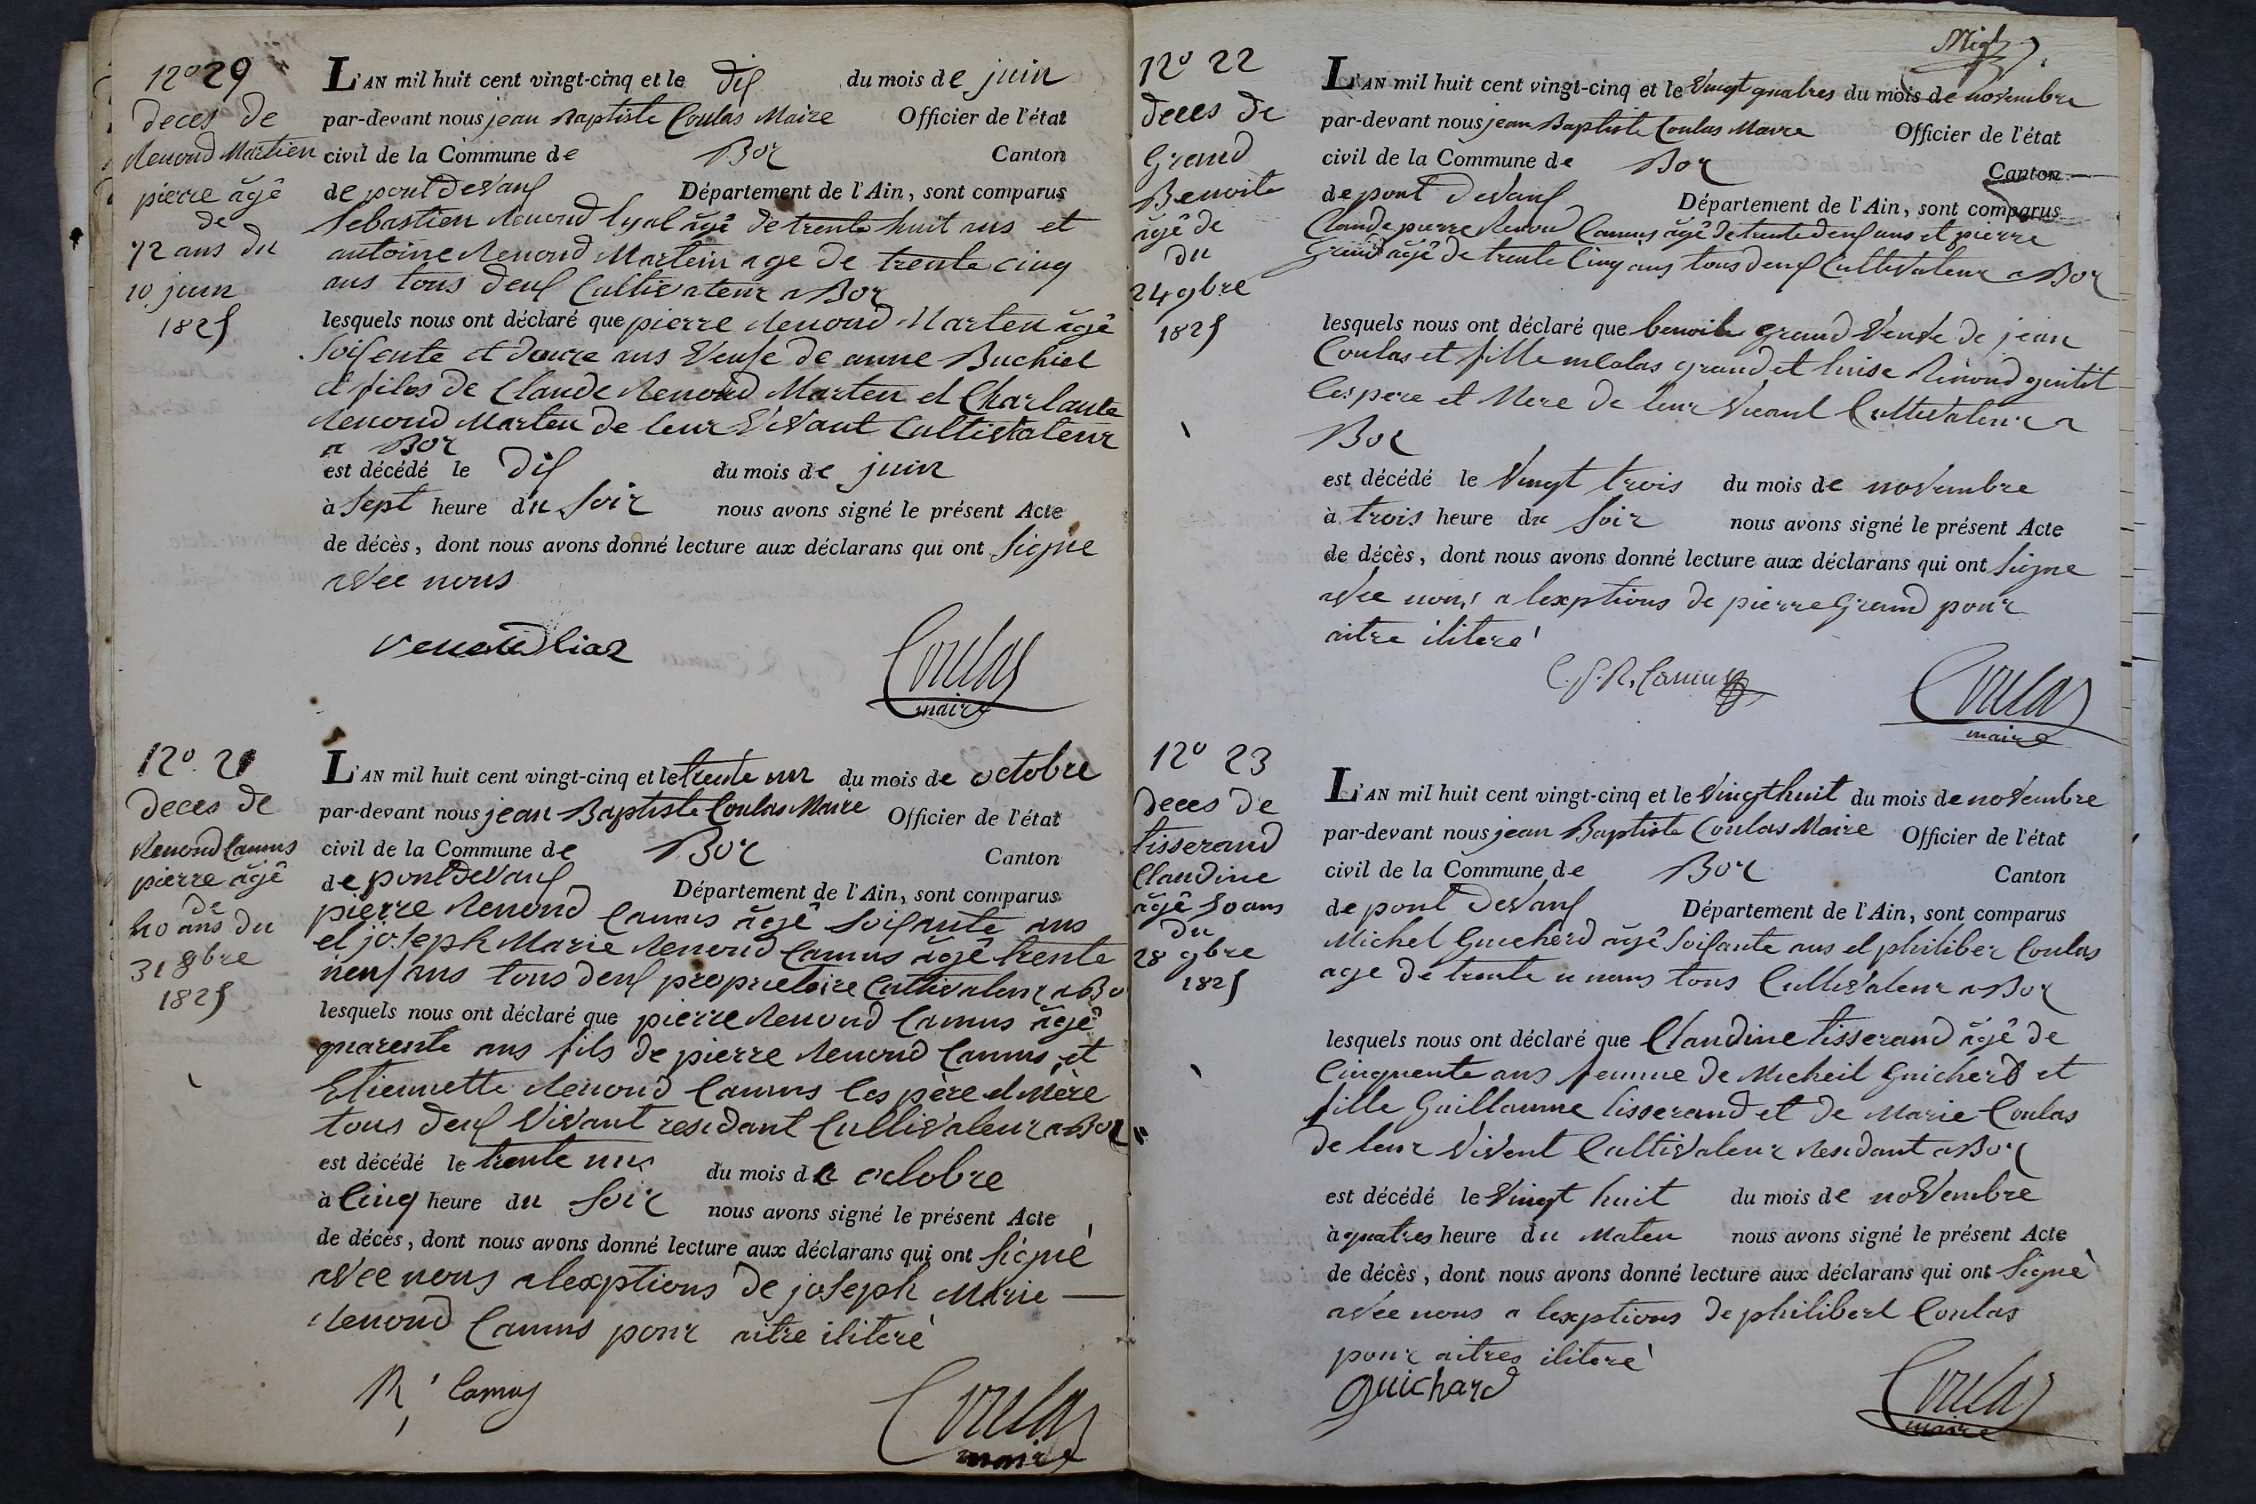 N° 29
deces de
Renoud Martien
pierre âgê
de
72 ans du
10 juin
1825
L'AN mil huit cent vingt-cinq et le dix du mois de juin
par-devant nous jean Baptiste Coulas Maire Officier de l'état
civil de la Commune de Boz Canton
de pont devaux Département de l'Ain, sont comparus
Sebastien Renoud lyat âgê de trente huit ans et
antoine Renoud Martein age de trente cinq
ans tous deux Cultivateur a Boz
lesquels nous ont déclaré que pierre Renoud Marten âgê
soisente et douze ans Veufe de anne Buchiet
et fils de Claude Renoud Marten et Charlante
Renoud Marten de leur Vivant Cultivateur
a Boz
est décédé le dix du mois de juin
à sept heure du soir nous avons signé le présent Acte
de décès, dont nous avons donné lecture aux déclarans qui ont signe
avec nous
renoud liaz
Coulas
maire
N° 21
deces de
Renoud Camus
pierre âgê
de
40 ans du
31 8bre
1825
L'AN mil huit cent vingt-cinq et le trente un du mois de octobre
par-devant nous jean Baptiste Coulas Maire Officier de l'état
civil de la Commune de Boz Canton
de pont devaux Département de l'Ain, sont comparus
pierre Renoud Camus âgê soisante ans
et joseph Marie Renoud Camus âgê trente
neuf ans tous deux proprietoire Cultivateur a Bo
lesquels nous ont déclaré que pierre Renoud Camus âgê
quarente ans fils de pierre Renoud Camus et
Etiennette Renoud Camus les père et mère
tous deux Vivant residant Cultivateur a Boz
est décédé le trente une du mois de octobre
à Cinq heure du soir nous avons signé le présent Acte
de décès, dont nous avons donné lecture aux déclarans qui ont signé
avec nous a lexptions de joseph Marie
Renoud Camus pour aitre iliteré
R, Camus
Coulas
maire
N° 22
deces de
Grand
Benoite
âgê de
du
24 9bre
1825
L'AN mil huit cent vingt-cinq et le Vingt quatres du mois de novembre
par-devant nous jean Baptiste Coulas Maire Officier de l'état
civil de la Commune de Boz Canton
de pont devaux Département de l'Ain, sont comparus
Claude pierre Renoud Camus âgê de trente deux ans et pierre
Grand âgê de trente Cinq ans tous deux Cultivateur a Boz
lesquels nous ont déclaré que benoite grand Veuve de jean
Coulas et fille nicolas grand et luise Renoud gentit
les pere et Mere de leur Vivant Cultivateur a
Boz
est décédé le Vingt trois du mois de novembre
à trois heure du soir nous avons signé le présent Acte
de décès, dont nous avons donné lecture aux déclarans qui ont signe
avec nous a lexptions de pierre Grand pour
aitre ilitere
C. P. R. Camus
Coulas
maire
N° 23
deces de
tisserand
Claudine
âgê 50 ans
du
28 9bre
1825
L'AN mil huit cent vingt-cinq et le Vingt huit du mois de novembre
par-devant nous jean Baptiste Coulas Maire Officier de l'état
civil de la Commune de Boz Canton
de pont devaux Département de l'Ain, sont comparus
Michel Guicherd âgê soisante ans et philiber Coulas
age de trente u nans tous Cultivateur a Boz
lesquels nous ont déclaré que Claudine tisserand âgê de
Cinquente ans femme de Micheil Guicherd et
fille Guillaume tisserand et de Marie Coulas
de leur Vivent Cultivateur Residant a Boz
est décédé le Vingt huit du mois de novembre
à quatres heure du Maten nous avons signé le présent Acte
de décès, dont nous avons donné lecture aux déclarans qui ont signé
avec nous a lexptions de philibert Coulas
pour aitres iliteré
guichard
Coulas
maire